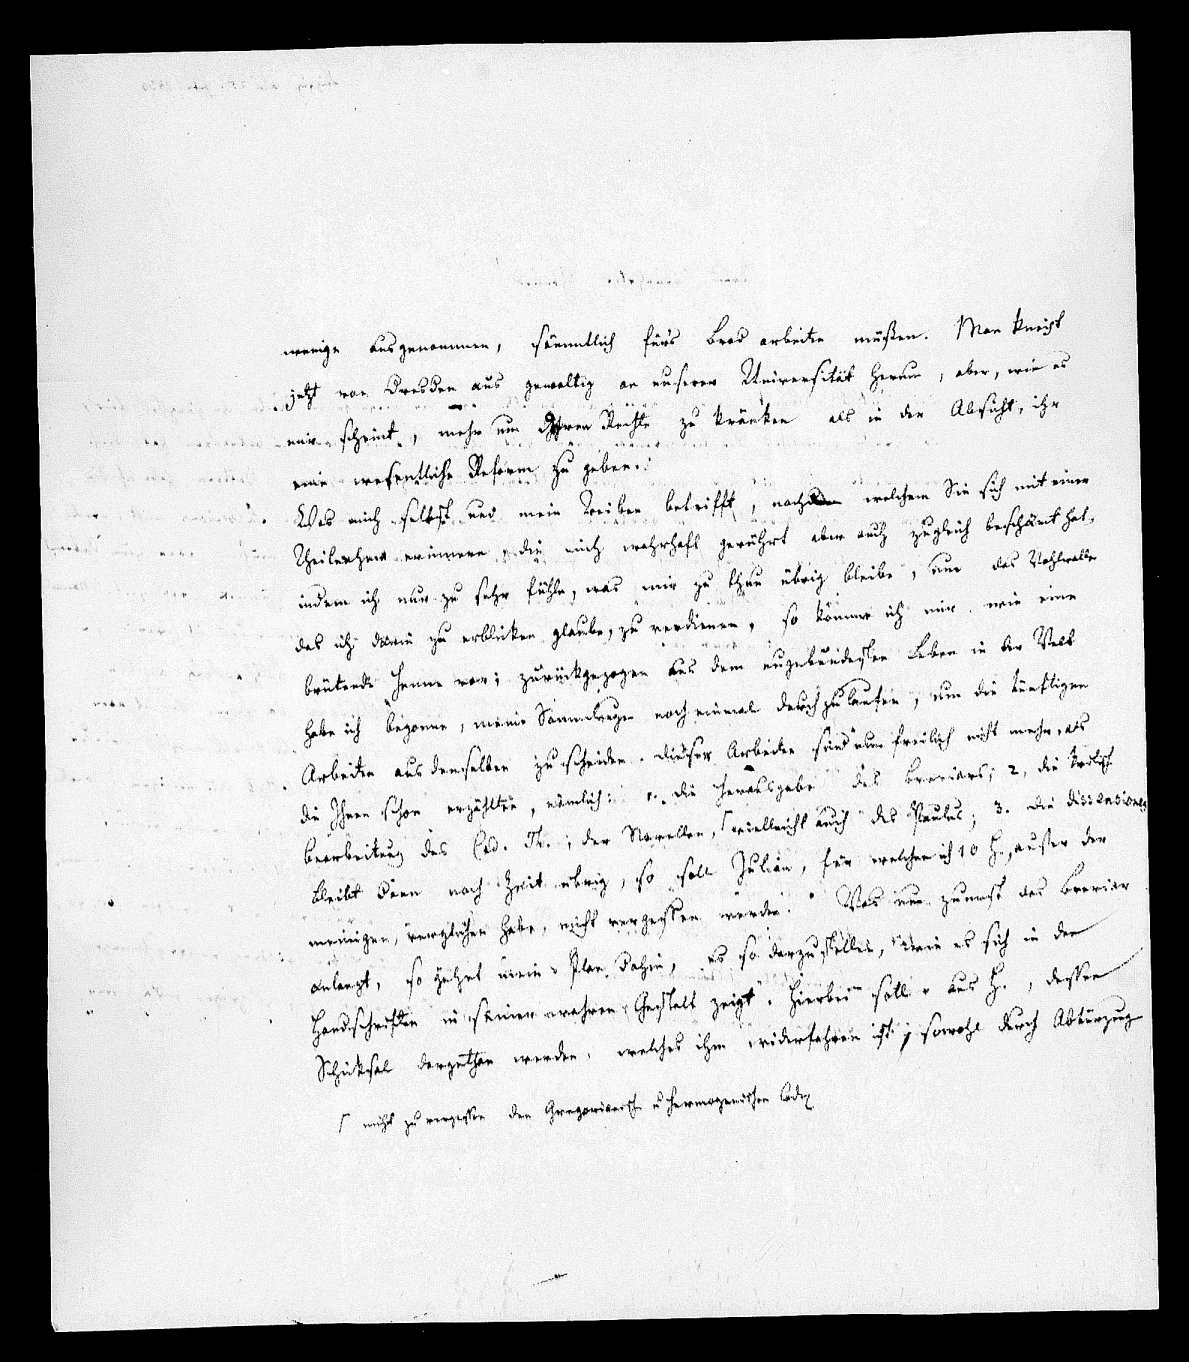 wenige ausgenommen, sämmtlich fürs Brod arbeiten müßen. Man kneipt
jetzt von Dresden aus gewaltig an unserer Universität herum, aber, wie es
mir scheint, mehr um ihren Rechte zu kränken als in der Absicht, ihr
eine wesentliche Reform zu geben.
Was mich selbst und mein Treiben betrifft, nach welchem Sie sich mit einer
Theilnahme erinnern, die mich wahrhaft gerührt aber auch zugleich beschämt hat,
indem ich nur zu sehr fühle, was mir zu thun übrig bleibe, um das Wohlwollen
das ich darin zu erblicken glaube, zu verdienen, so komme ich mir wie eine
brütende Henne vor; zurückgezogen aus dem ungebundesten Leben in der Welt
habe ich begonnen, meine Sammlungen noch einmal durchzulaufen, um die künftigen
Arbeiten aus denselben zu scheiden. Dieser Arbeiten sind nun freilich nicht mehr, als
die Ihnen schon erzählten, nämlich: 1. die Herausgabe des Breviars; 2, die kritisch
Bearbeitung des Cod. Th., der Novellen, ⌈vielleicht auch des Paulus; 3. die dissensiones
bleibt dann noch Zeit übrig, so soll Julian, für welchen ich 10 H., außer der
meinigen, verglichen habe, nicht vergessen werden. Was nun zunächst das Breviar
anlangt, so gehet mein Plan dahin, es so darzustellen, wie es sich in den
Handschriften in seiner wahren Gestalt zeigt. Hierbei soll aus H., dessen
Schicksal dargethan werden, welches ihm widerfahren ist, sowohl durch Abkürzug
⌈ nicht zu vergessen den Gregorianisch u Hermogenischen Codex